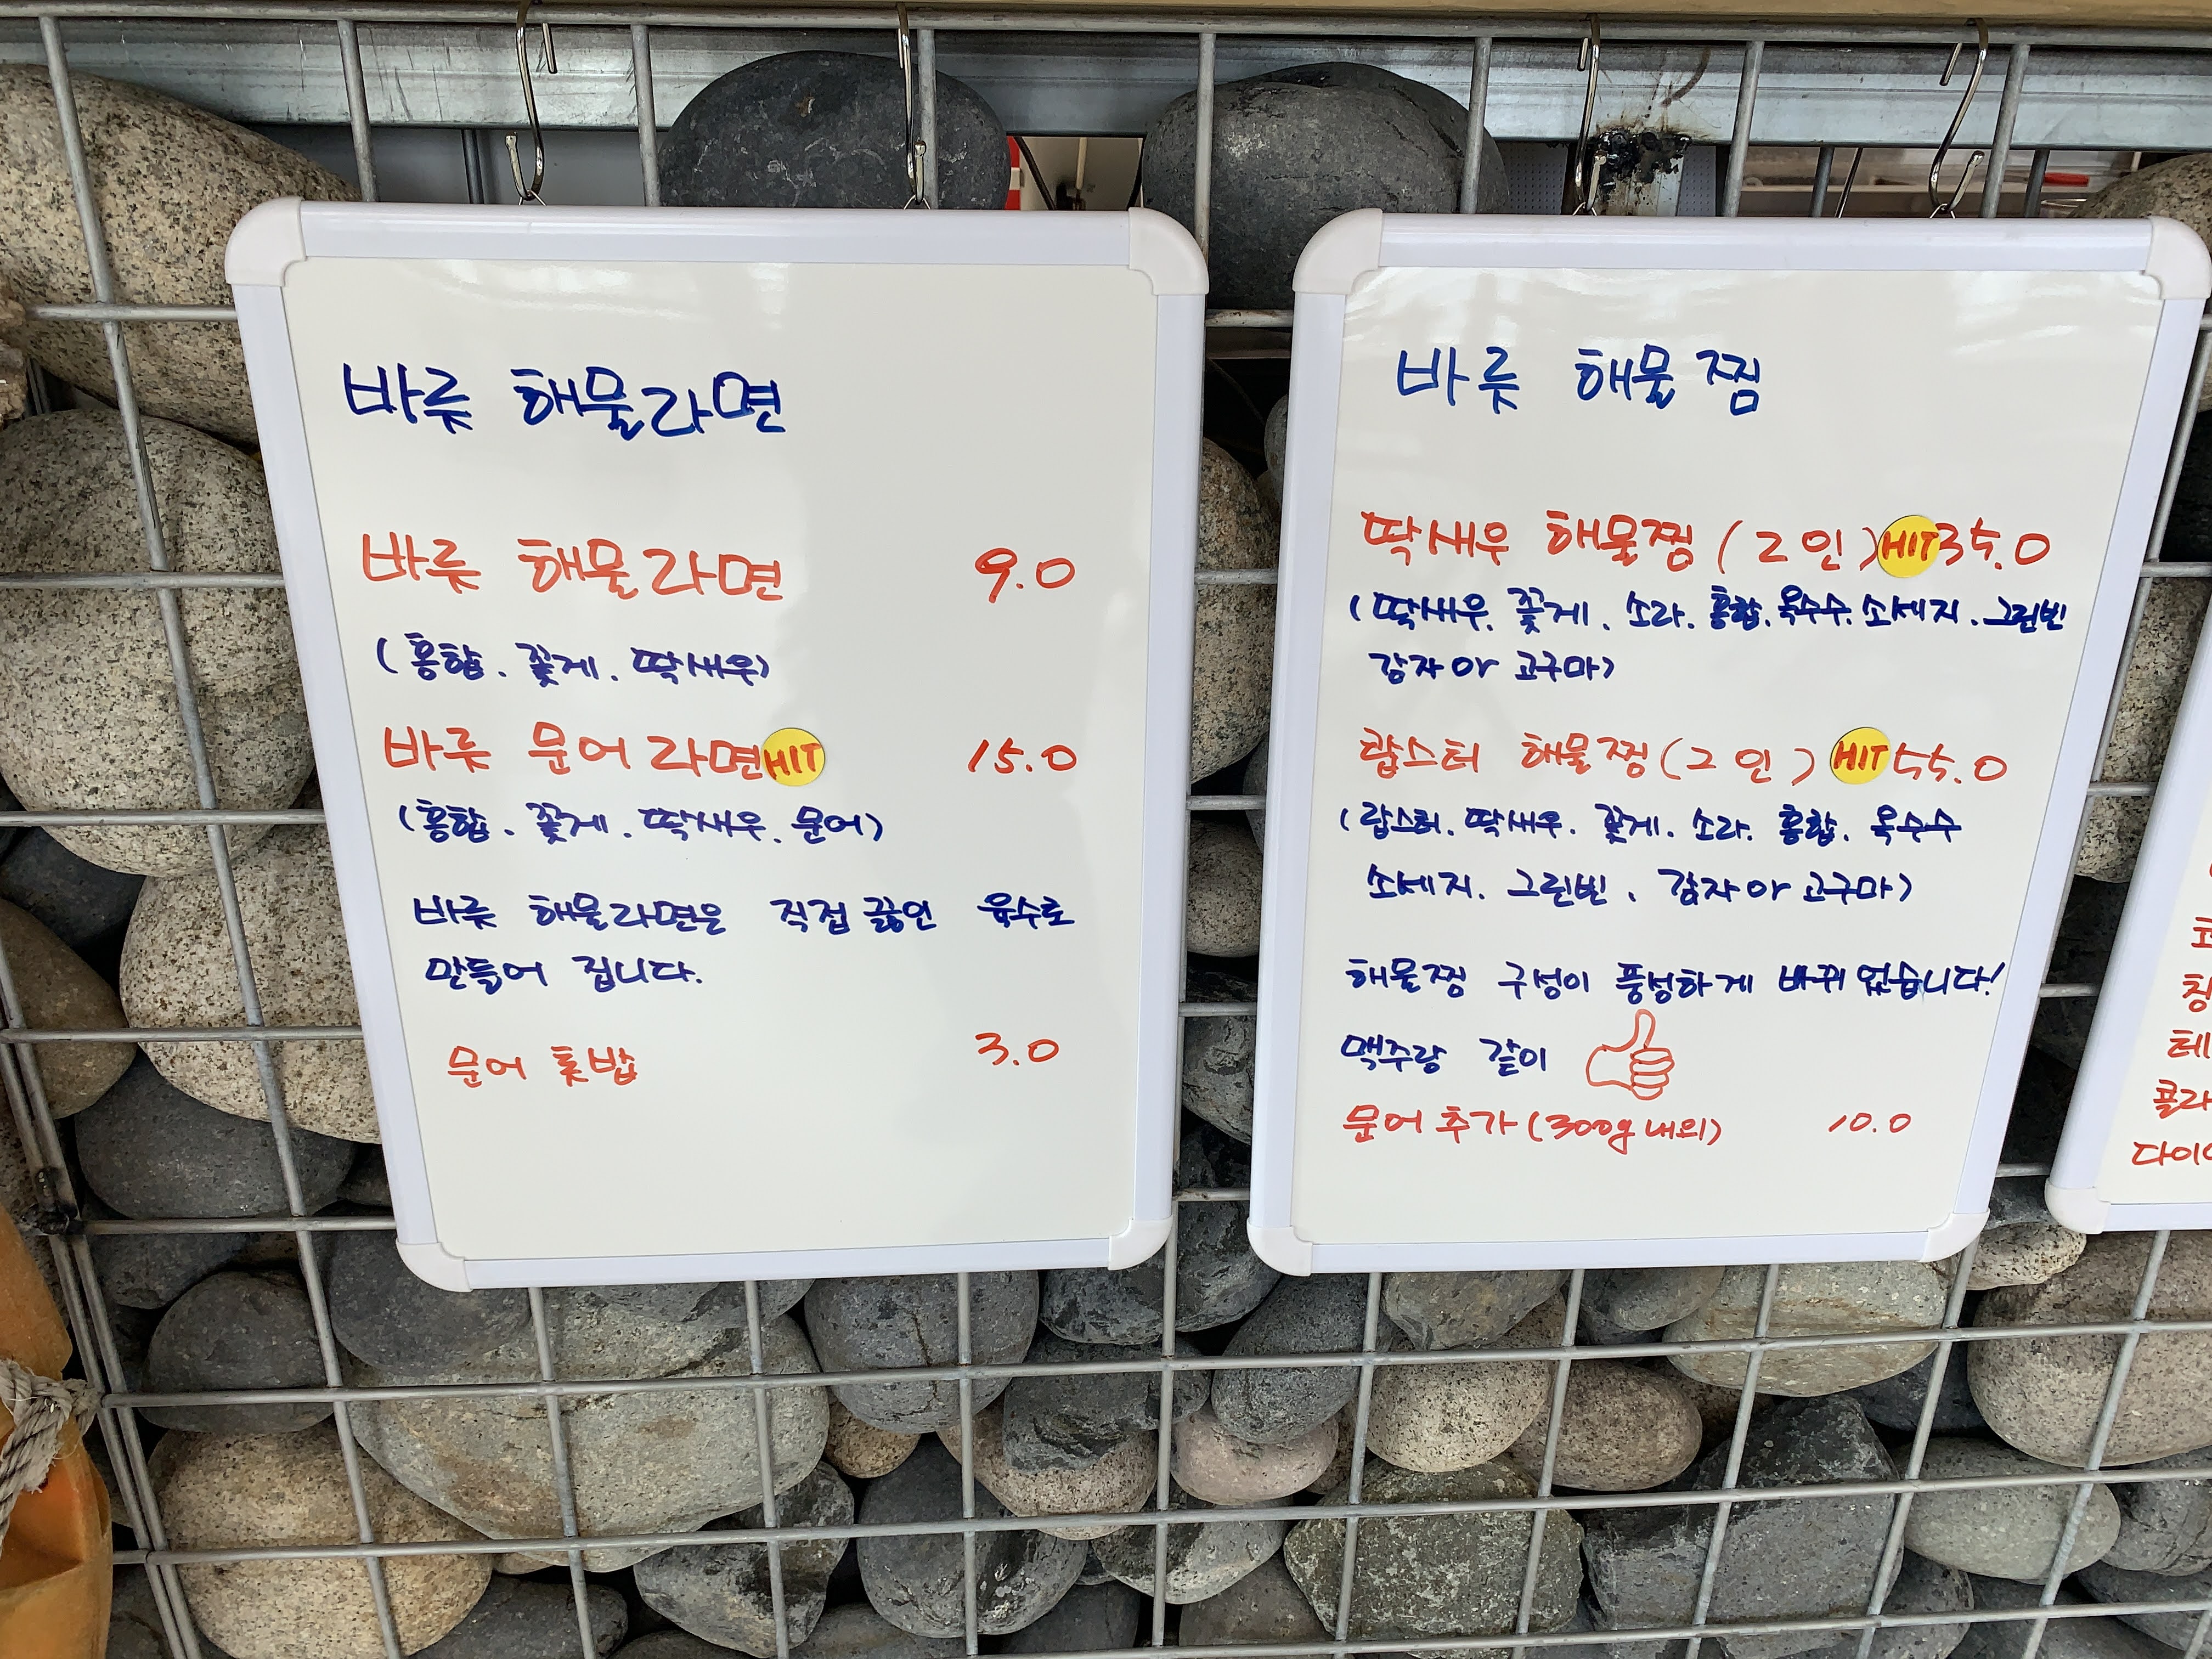 바릇 해물라면
바릇 해물라면 9.0
(홍합. 꽃게. 딱새우)
바릇 문어라면 HIT 15.0
(홍합. 꽃게. 딱새우. 문어)
바릇 해물라면은 직접 끓인 육수로
만들어 집니다.
문어 톳밥 3.0
바릇 해물찜
딱새우 해물찜 (2인) HIT 35.0
(딱새우. 꽃게. 소라. 홍합. 옥수수. 소세지. 그린빈
감자 or 고구마)
랍스터 해물찜 (2인) HIT 55.0
(랍스터. 딱새우. 꽃게. 소라. 홍합. 옥수수
소세지. 그린빈. 감자 or 고구마)
해물찜 구성이 풍성하게 바뀌었습니다!
맥주랑 같이
문어 추가 (300g 내외) 10.0